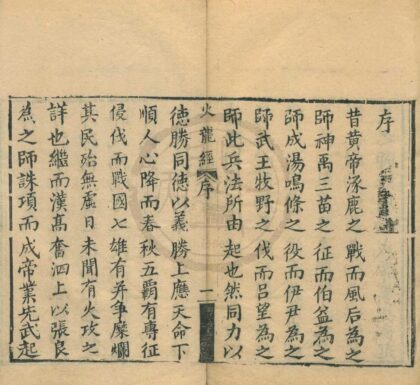 序
昔黄帝涿鹿之戰而風后為之
師神禹三苗之征而伯益為之
師成湯鳴條之役而伊尹為之
師武王牧野之伐而呂望為之
師此兵法所由起也然同力以
火龍經 序 一
德勝同德以義勝上應天命下
順人心降而春秋五霸有專征
侵伐而戰國七雄有并爭糜爛
其民殆無虛日未聞有火攻之
詳也繼而漢高奮泗上以張良
為之師誅項而成帝業光武起